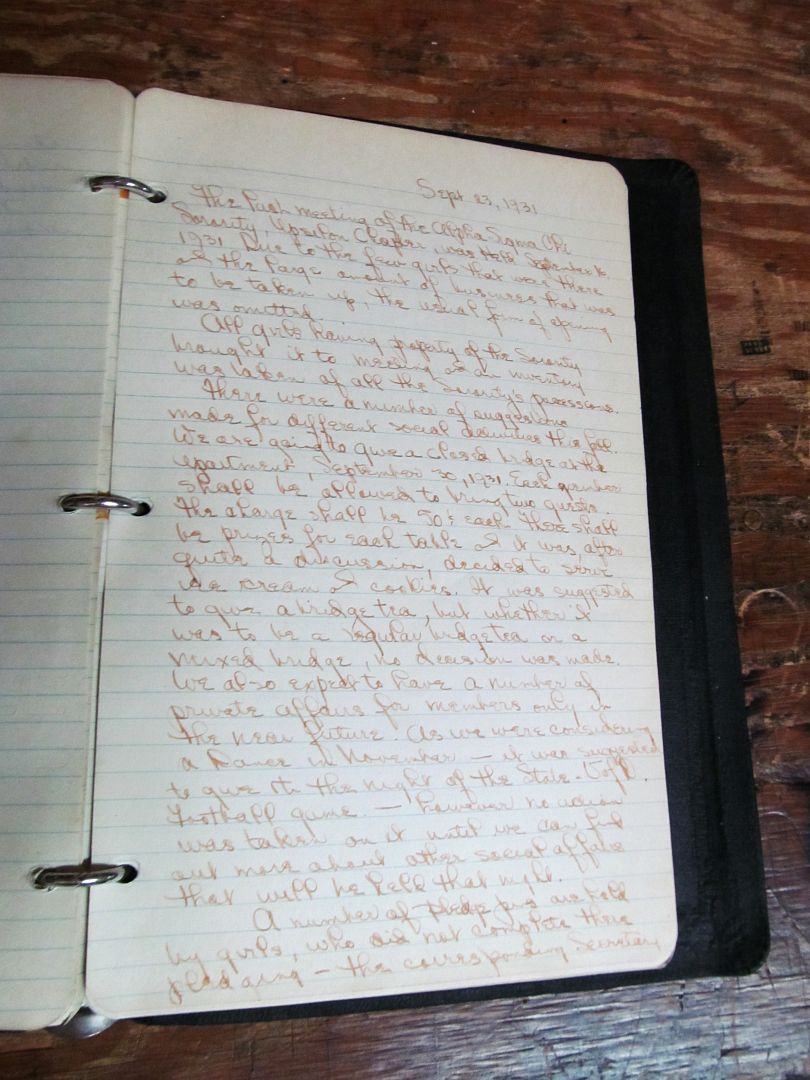 Sept 23, 1931
The meeting of the Alpha Sigma Chi
Sorority, Upsilon Chapter, was held September 16
1931. Due to the few girls that was there
and the large amount of business that was
to be taken up, the usual form of opening
was omitted.
All girls having property of the Sorority
brought it to meeting as an inventory
was taken of all the Sorority's possessions.
There were a number of suggestions
made for different social activities this fall.
We are going to give a closed bridge at the
apartment, September 30, 1931. Each member
shall be allowed to bring two guests.
The charge shall be 50¢ each. There shall
be prizes for each table & it was, after
quite a discussion, decided to serve
ice cream & cookies. It was suggested
to give a bridge tea, but whether it
was to be a regular bridge tea or a
mixed bridge, no decision was made.
We also expect to have a number of
private affairs for members only in
the near future. As we were considering
a Dance in November — it was suggested
to give it the night of the State - U of D.
football game. — however no action
was taken on it until we can find
out more about other social affairs
that will be held that night.
A number of pledge pins are held
by girls, who did not complete there
pledging — the corresponding Secretary